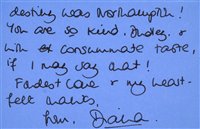 destiny was Northampton!
You are so kind, Dudley, &
with consummate taste,
if I may say that!
Fondest love & my heart-
felt thanks,
from, Diana.